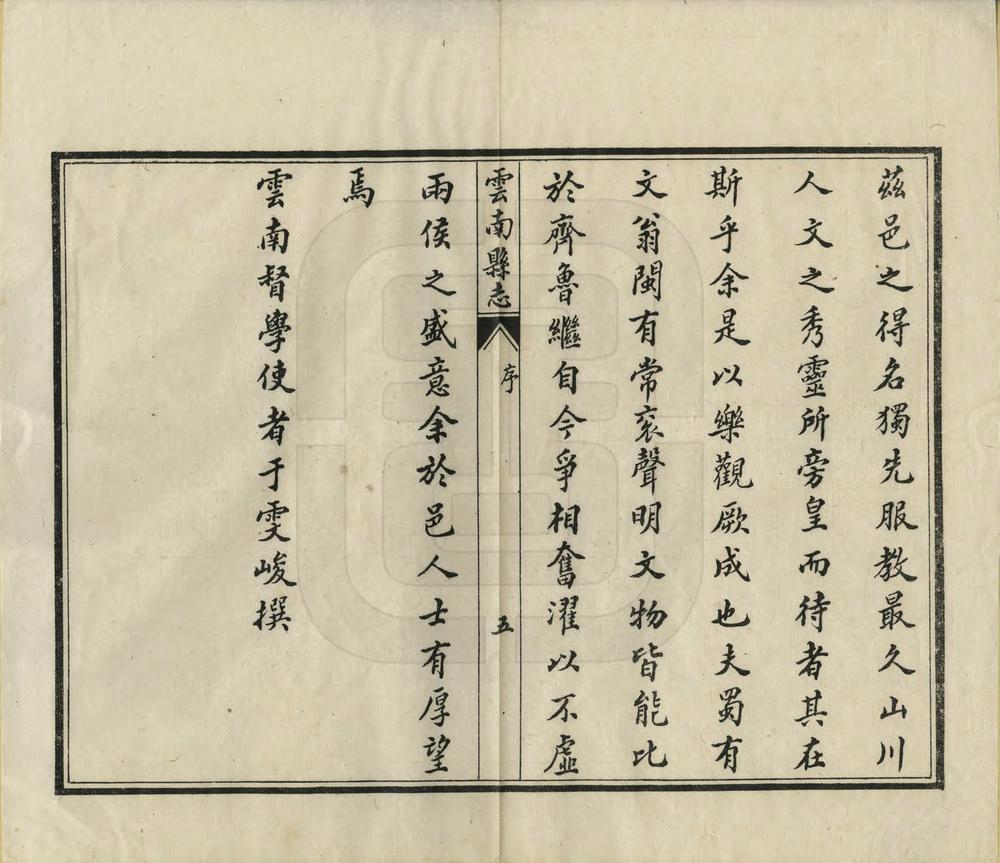 茲邑之得名獨先服教最久山川
人文之秀靈所旁皇而待者其在
斯乎余是以樂觀厥成也夫蜀有
文翁閩有常袞聲明文物皆能比
於齊魯繼自今爭相奮濯以不虛
雲南縣志
序
五
兩侯之盛意余於邑人士有厚望
焉
雲南督學使者于雯峻撰